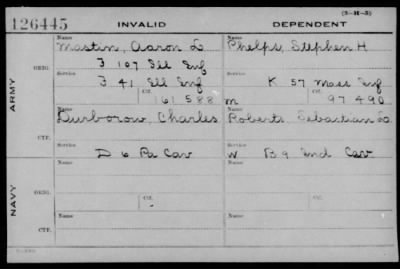 (3-H-5)
126445 INVALID DEPENDENT
Name Name
Mastin, Aaron L Phelps, Stephen H
ORIG. F 107 Ill Inf
Service Service
F 41 Ill Inf K 57 Mass Inf
ARMY Ctf. Ctf.
161 588 m 97 490
Name Name
Durborow, Charles Roberts, Sebastian
CTF.
Service Service
D 6 Pa Cav W B 9 Ind Cav
Name Ctf. Name Ctf.
NAVY ORIG.
Service Ctf. Service Ctf.
Name Name
CTF.